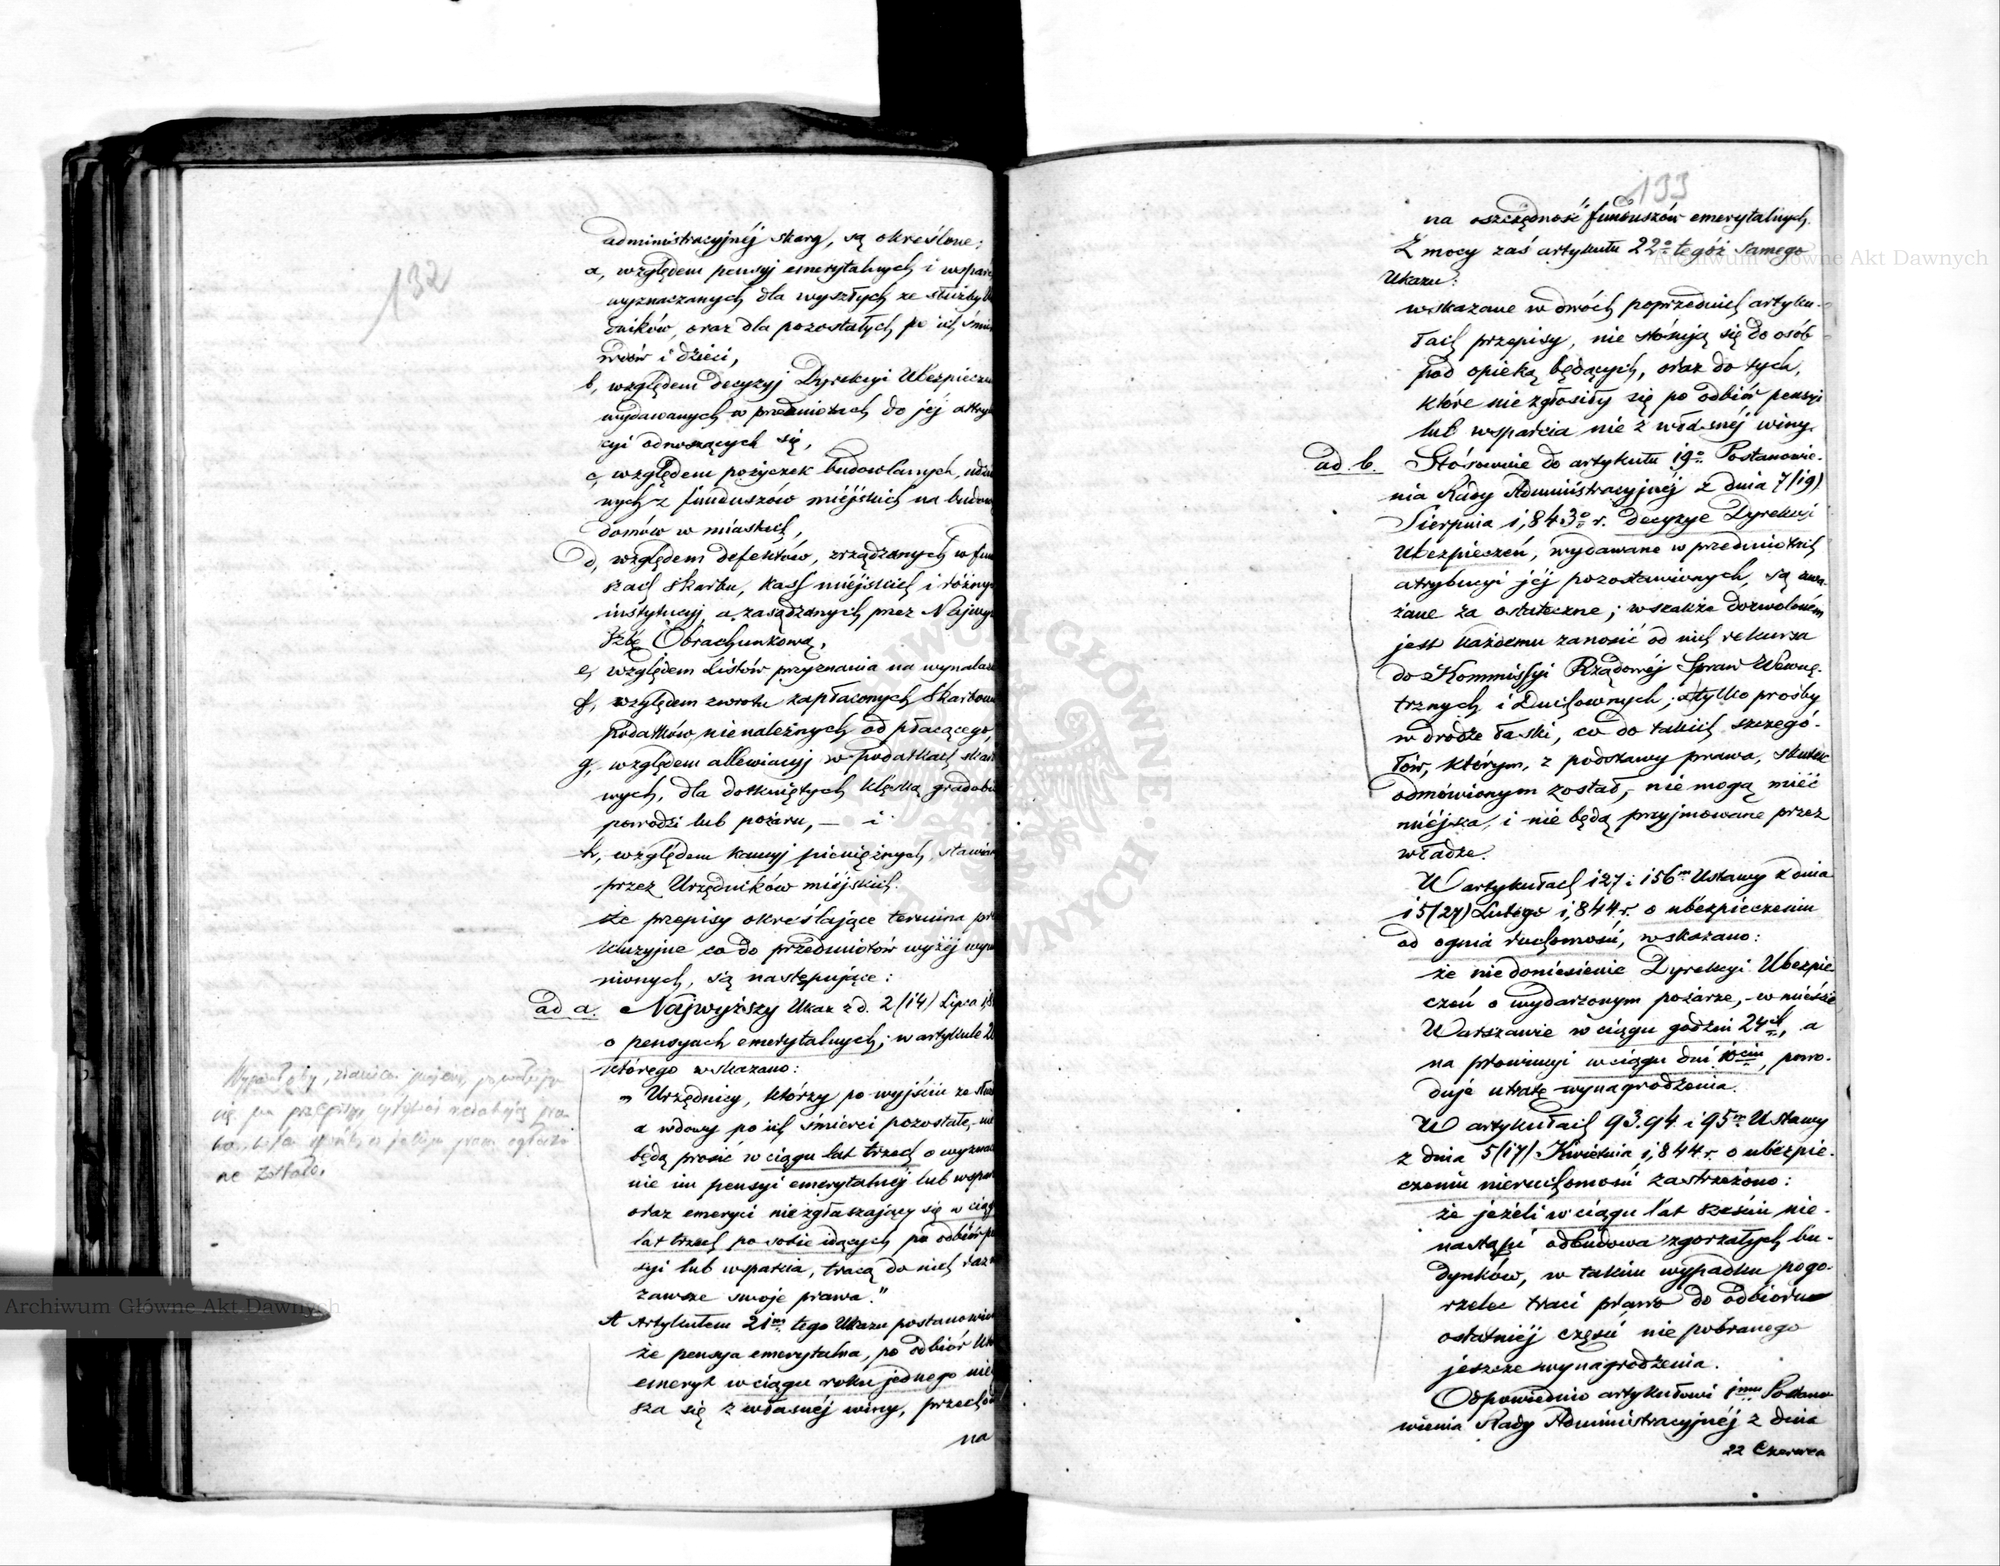 132
administracyjnéj skarg, są określone:
a, względem pensyj emerytalnych i wsparć
wyznaczanych dla wyszłych ze służby
dników, oraz dla pozostałych po ich
wdów i dzieci,
b, względem decyzyj Dyrekcyi Ubezpiecze
wydawanych w przedmiotach do jéj attry
cyi odnoszących się,
c, względem pożyczek budowlanych, udzie
nych z funduszów miéjskich na budowę
domów w miastach,
d, względem defektów, zrządzanych w fun
szach Skarbu, kass miéjskich i różnych
instytucyj, a zasądzanych przez Najwyż
Izbę Obrachunkową,
e, względem Listów przyznania na wynalaz
f, względem zwrotu zapłaconych Skarbowi
podatków, nienależnych od płacącego,
g, względem allewiacyj w podatkach skar
wych, dla dotkniętych klęską gradobi
powodzi lub pożaru, — i
h, względem kaucyj pieniężnych, stawion
przez Urzędników miéjskich.
że przepisy określające termina pre
kluzyjne co do przedmiotów wyżéj wym
nionych, są następujące:
ad a. Najwyższy Ukaz z d. 2/14/ Lipca 18
o pensyach emerytalnych, w artykule 20
którego wskazano:
„Urzędnicy, którzy po wyjściu ze służ
a wdowy po ich śmierci pozostałe, nie
będą prosić w ciągu lat trzech o wyznac
nie im pensyi emerytalnéj lub wspar
oraz emeryci niezgłaszający się w ciągu
lat trzech po sobie idących po odbiór pen
syi lub wsparcia, tracą do nich raz na
zawsze swoje prawa."
A Artykułem 21m tego Ukazu postanowiono
że pensya emerytalna, po odbiór któ
emeryt w ciągu roku jednego nie
sza się z własnéj winy, przechodzi
na
ne zostało.
133
na oszczędność funduszów emerytalnych.
Z mocy zaś artykułu 22o tegóż samego
Ukazu:
wskazane w dwóch poprzednich artyku-
łach przepisy, nie stósują się do osób
pod opieką będących, oraz do tych,
które niezgłosiły się po odbiór pensyi
lub wsparcia nie z własnéj winy.
ad b. Stósownie do artykułu 19o Postanowie-
nia Rady Administracyjnéj z dnia 7/19/
Sierpnia 1,843o r. decyzye Dyrekcyi
Ubezpieczeń, wydawane w przedmiotach
atrybucyi jéj pozostawionych, są uwa-
żane za ostateczne; wszakże dozwolonem
jest każdemu zanosić od nich rekursa
do Kommissyi Rządowéj Spraw Wewnę-
trznych i Duchownych; a tylko prośby
w drodze łaski, co do takich szczegó-
łów, którym, z podstawy prawa, skutek
odmówionym został, nie mogą mieć
miéjsca, i nie będą przyjmowane przez
władze.
W artykułach 127 i 156m Ustawy z dnia
15/27/ Lutego 1,844 r. o ubezpieczeniu
od ognia ruchomości, wskazano:
że niedoniesienie Dyrekcyi Ubezpie-
czeń o wydarzonym pożarze, w mieście
Warszawie w ciągu godzin 24ch, a
na prowincyi w ciągu dni 10ciu, powo-
duje utratę wynagrodzenia.
W artykułach 93. 94. i 95m Ustawy
z dnia 5/17/ Kwietnia 1,844 r. o ubezpie-
czeniu nieruchomości zastrzeżono:
że jeżeli w ciągu lat sześciu nie-
nastąpi odbudowa zgorzałych bu-
dynków, w takim wypadku pogo-
rzelec traci prawo do odbioru
ostatniéj części nie pobranego
jeszcze wynagrodzenia.
Odpowiednio artykułowi 1mu Postano-
wienia Rady Administracyjnéj z dnia
22 Czerwca
Archiwum Główne Akt Dawnych
Archiwum Główne Akt Dawnych